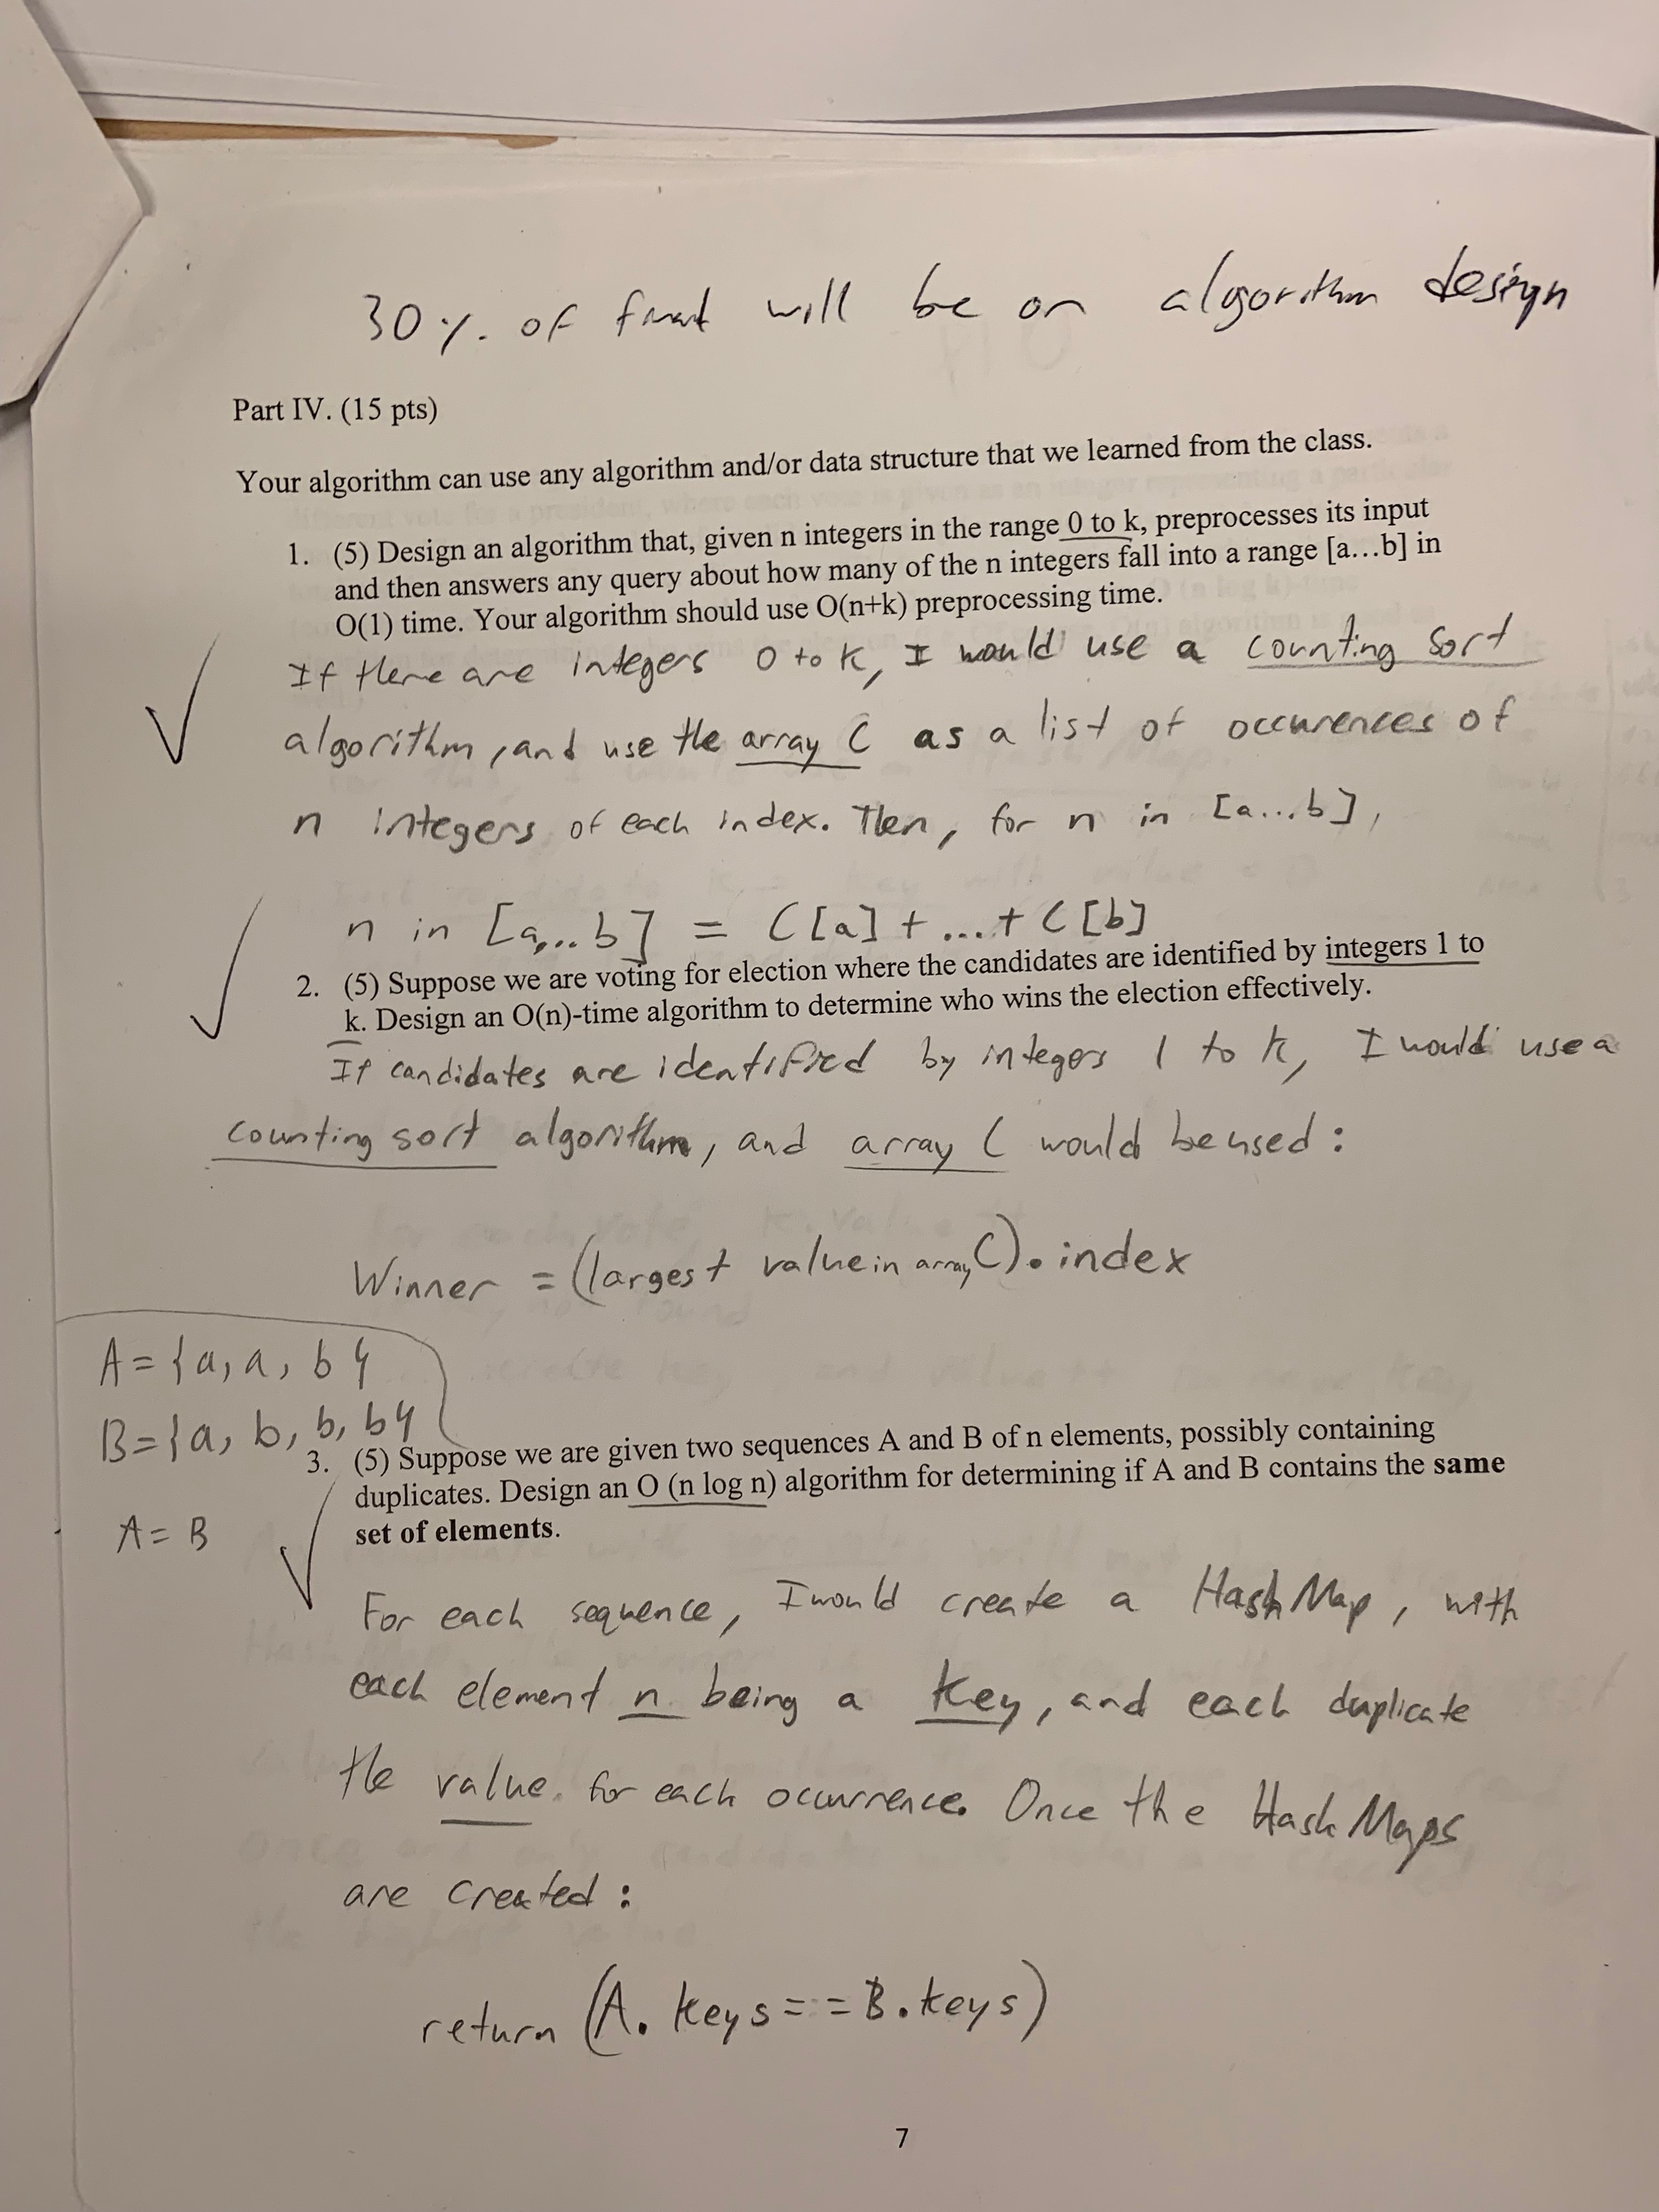 30%. of final will be on algorithm design
Part IV. (15 pts)
Your algorithm can use any algorithm and/or data structure that we learned from the class.
1. (5) Design an algorithm that, given n integers in the range 0 to k, preprocesses its input
and then answers any query about how many of the n integers fall into a range [a…b] in
O(1) time. Your algorithm should use O(n+k) preprocessing time.
If there are integers 0 to k, I would use a counting sort
algorithm, and use the array C as a list of occurences of
n integers of each index. Then, for n in [a...b],
n in [a,..b] = C[a] + ...+ C[b]
2. (5) Suppose we are voting for election where the candidates are identified by integers 1 to
k. Design an O(n)-time algorithm to determine who wins the election effectively.
If candidates are identified by integers 1 to k, I would use a
counting sort algorithm, and array C would be used:
Winner = (largest value in array C).index
A = {a, a, b}
B = {a, b, b, b}
3. (5) Suppose we are given two sequences A and B of n elements, possibly containing
duplicates. Design an O (n log n) algorithm for determining if A and B contains the same
set of elements.
A = B
For each sequence, I would create a Hash Map, with
each element n being a key, and each duplicate
the value for each occurrence. Once the Hash Maps
are created:
return (A. keys == B. keys)
7